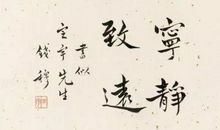 寧靜
致遠
書似
宣宇先生
錢穆